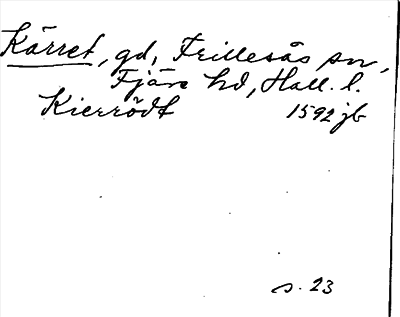 Kärret, gd, Frillesås sn,
Fjäre hd, Hall. l.
Kierrödt 1592 jb
s. 23